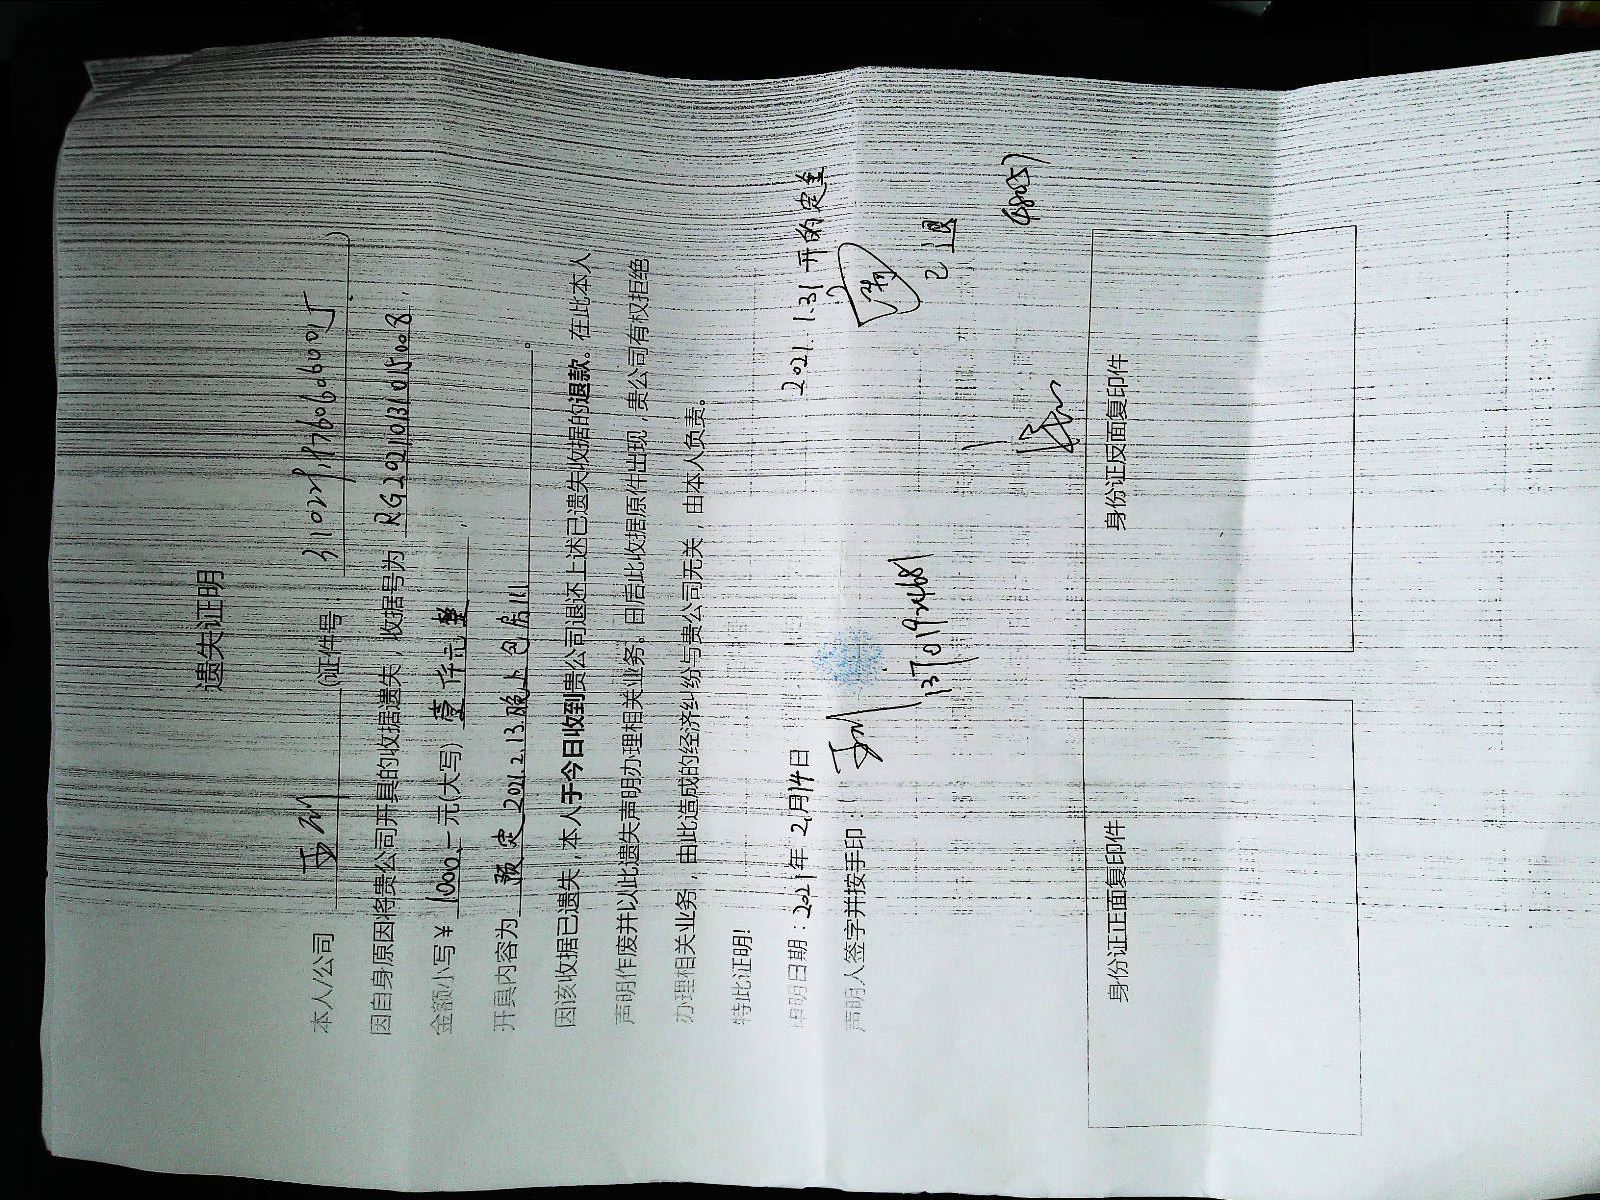 遗失证明
本人/公司 (证件号: )
因自身原因将贵公司开具的收据遗失，收据号为 RG20210131015008，
金额小写¥ 1000.- 元(大写) 壹仟元整，
开具内容为 预定2021.2.13.晚上包房111。
因该收据已遗失，本人于今日收到贵公司退还上述已遗失收据的退款。在此本人
声明作废并以此遗失声明办理相关业务。日后此收据原件出现，贵公司有权拒绝
办理相关业务，由此造成的经济纠纷与贵公司无关，由本人负责。
特此证明!
申明日期：2021年2月14日
2021.1.31开的定金
已退
声明人签字并按手印：
13701972468
身份证正面复印件
身份证反面复印件